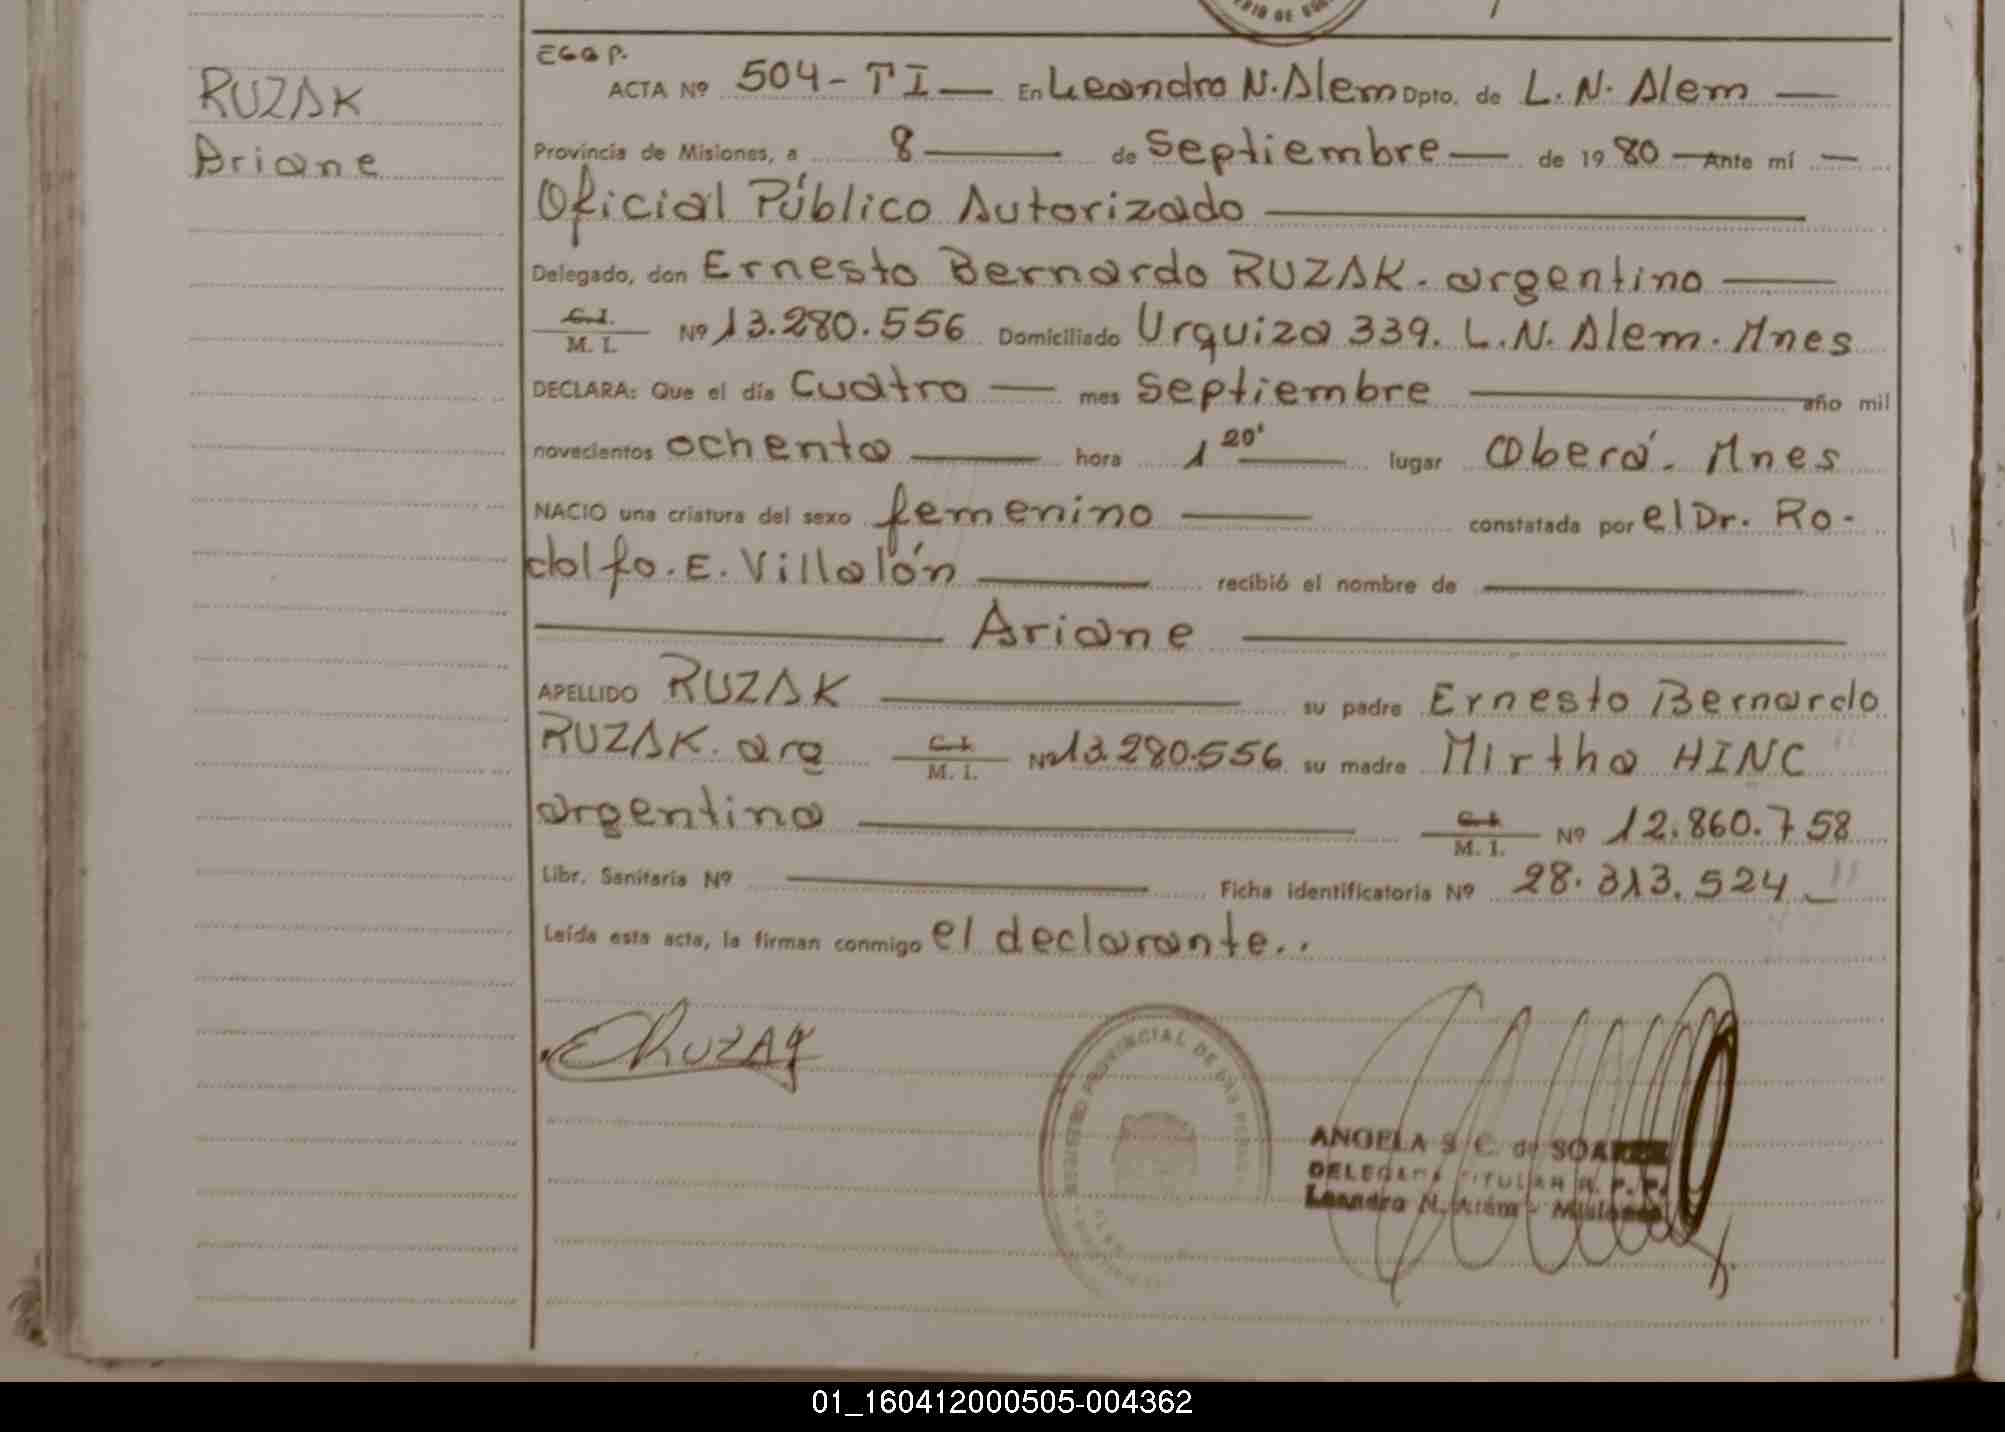 RUZAK
Ariane
EGGP.
ACTA Nº 504-TI — En Leandro N. Alem Dpto. de L. N. Alem —
Provincia de Misiones, a 8 — de Septiembre — de 1980 — Ante mí —
Oficial Público Autorizado —
Delegado, don Ernesto Bernardo RUZAK. argentino —
C.I.
M. I. Nº 13.280.556 Domiciliado Urquiza 339. L.N. Alem. Mnes
DECLARA: Que el día Cuatro — mes Septiembre — año mil
novecientos ochenta — hora 1 20' — lugar Oberá. Mnes
NACIO una criatura del sexo femenino — constatada por el Dr. Ro-
dolfo. E. Villalón — recibió el nombre de —
— Ariane —
APELLIDO RUZAK — su padre Ernesto Bernardo
RUZAK. arg C.I. M. I. Nº 13.280.556 su madre Mirtha HINC
argentina — C.I. M. I. Nº 12.860.758
Libr. Sanitaria Nº — Ficha identificatoria Nº 28.313.524
Leída esta acta, la firman conmigo el declarante..
ERUZAK
REGISTRO PROVINCIAL DE LAS PERSONAS
ANGELA S. C. de SOAREZ
DELEGADA TITULAR R. P. P.
Leandro N. Alem - Misiones
01_160412000505-004362